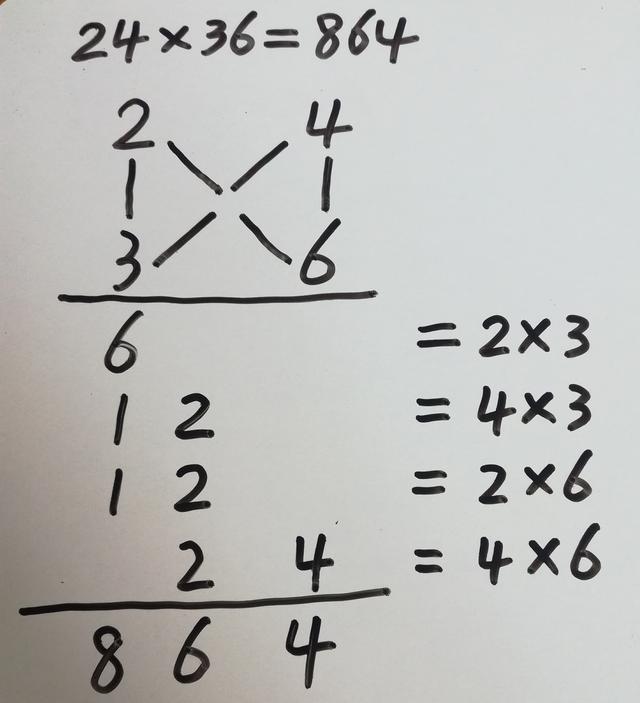 24×36=864
2 4
3 6
6 = 2×3
1 2 = 4×3
1 2 = 2×6
2 4 = 4×6
8 6 4